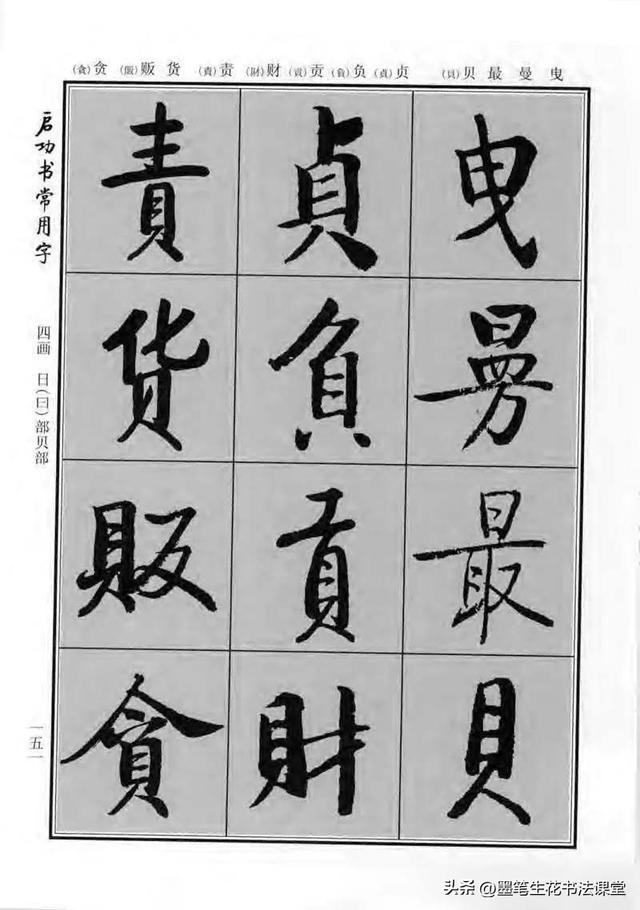 曳曼最贝(貝) 贞(貞)负(負)贡(貢)财(財) 责(責)货贩(販)贪(貪)
曳曼最貝
貞負貢財
責貨販貪
启功书常用字
四画 日(曰)部贝部
一五一
头条 @墨笔生花书法课堂